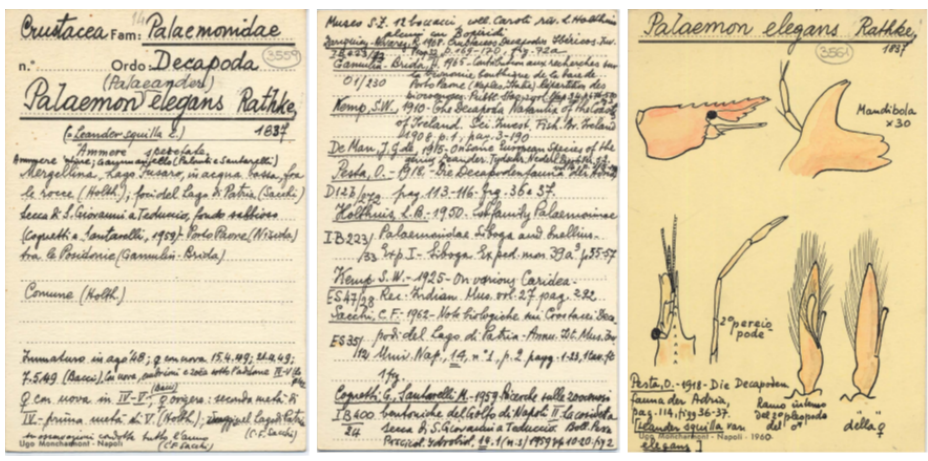 Crustacea Fam: Palaemonidae
3559
n.° Ordo: Decapoda
(Palaeander)
Palaemon elegans Rathke,
1837
(= Leander squilla L.)
Ammere
Mergellina, Lago Fusaro, in acqua bassa, fra
le rocce (Holth.); foci del Lago di Patria (Sacchi)
Secca di S. Giovanni a Teduccio, fondo sabbioso
(Cognetti e Santarelli, 1959) Porto Paone (Nisida)
tra le Posidonie (Gamulin-Brida)
Comune (Holth.)
Immaturo in ago '48; ♀ con uova 15.4.49; 21.4.49;
7.5.49 (Bacci)
♀ con uova in IV-V; ♀ ovigere: seconda metà di
IV - prima metà di V (Holth.); Lago di Patria
tutto l'anno
(C.F. Sacchi)
Ugo Moncharmont - Napoli
Museo S.Z. 12 boccacci, coll. Caroli riv. L. Holthuis
Zariquiey Alvarez, R. 1968. Crustaceos Decapodos Ibericos. Inv.
Pesq. 32 p. 169-170. fig. 72a
Gamulin-Brida, H. 1965 - Contribution aux recherches sur
la bionomie benthique de la baie de
01/230 Porto Paone (Naples, Italie) Repartition des
biocoenoses. Pubbl. Staz. zool. Nap.
Kemp, S.W. 1910 - The Decapoda Natantia of the Coasts
of Ireland. Sci. Invest. Fish. Br. Ireland
1908 p. 1, pag. 3-190
De Man, J.G. de, 1915 - On some European Species of the
genus Leander. Tydschr. Nederl.
Pesta, O. - 1918 - Die Decapodenfauna der Adria,
D123/272 pag. 113-116. fig. 36 e 37.
Holthuis, L.B. - 1950. Subfamily Palaemoninae
IB223/33 Palaemonidae Siboga and Snellius.
Exp. I - Siboga Exped. mon. 39a³ p. 55-57
Kemp S.W. - 1925 - On various Caridea.
ES47/28 Rec. Indian. Mus. vol. 27 pag. 292
Sacchi, C.F. - 1962 - Note biologiche sui Crostacei Deca
ES35/12 podi del Lago di Patria - Annu. Ist. Mus. Zoo.
Univ. Nap., 14, n° 1, p. 2 pagg. 1-23, 1 tav.
1 fig.
Cognetti G., Santarelli M. - 1959 - Ricerche sulle zoocenosi
IB400/24 bentoniche del Golfo di Napoli II - La cosidetta
secca di S. Giovanni a Teduccio. Boll. Pesca
Piscicol. Idrobiol. 14.1 (n.s.) 1959 pp. 10-20, fig 2
Palaemon elegans Rathke,
1837
3561
Mandibola
x 30
2° pereio
pode
Pesta, O. - 1918 - Die Decapoden
fauna der Adria,
pag. 114, figg 36-37.
[Leander squilla var.
elegans]
ramo interno
del 2° pleopodo
del ♂
" "
della ♀
Ugo Moncharmont - Napoli - 1960